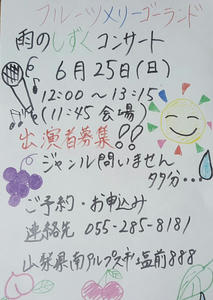 フルーツメリーゴーランド
雨のしずくコンサート
6月25日(日)
12:00〜13:15
(11:45 会場)
出演者募集!!
ジャンル問いません
タタ分…
ご予約・お申込み
連絡先 055-285-8181
山梨県南アルプス市塩前888